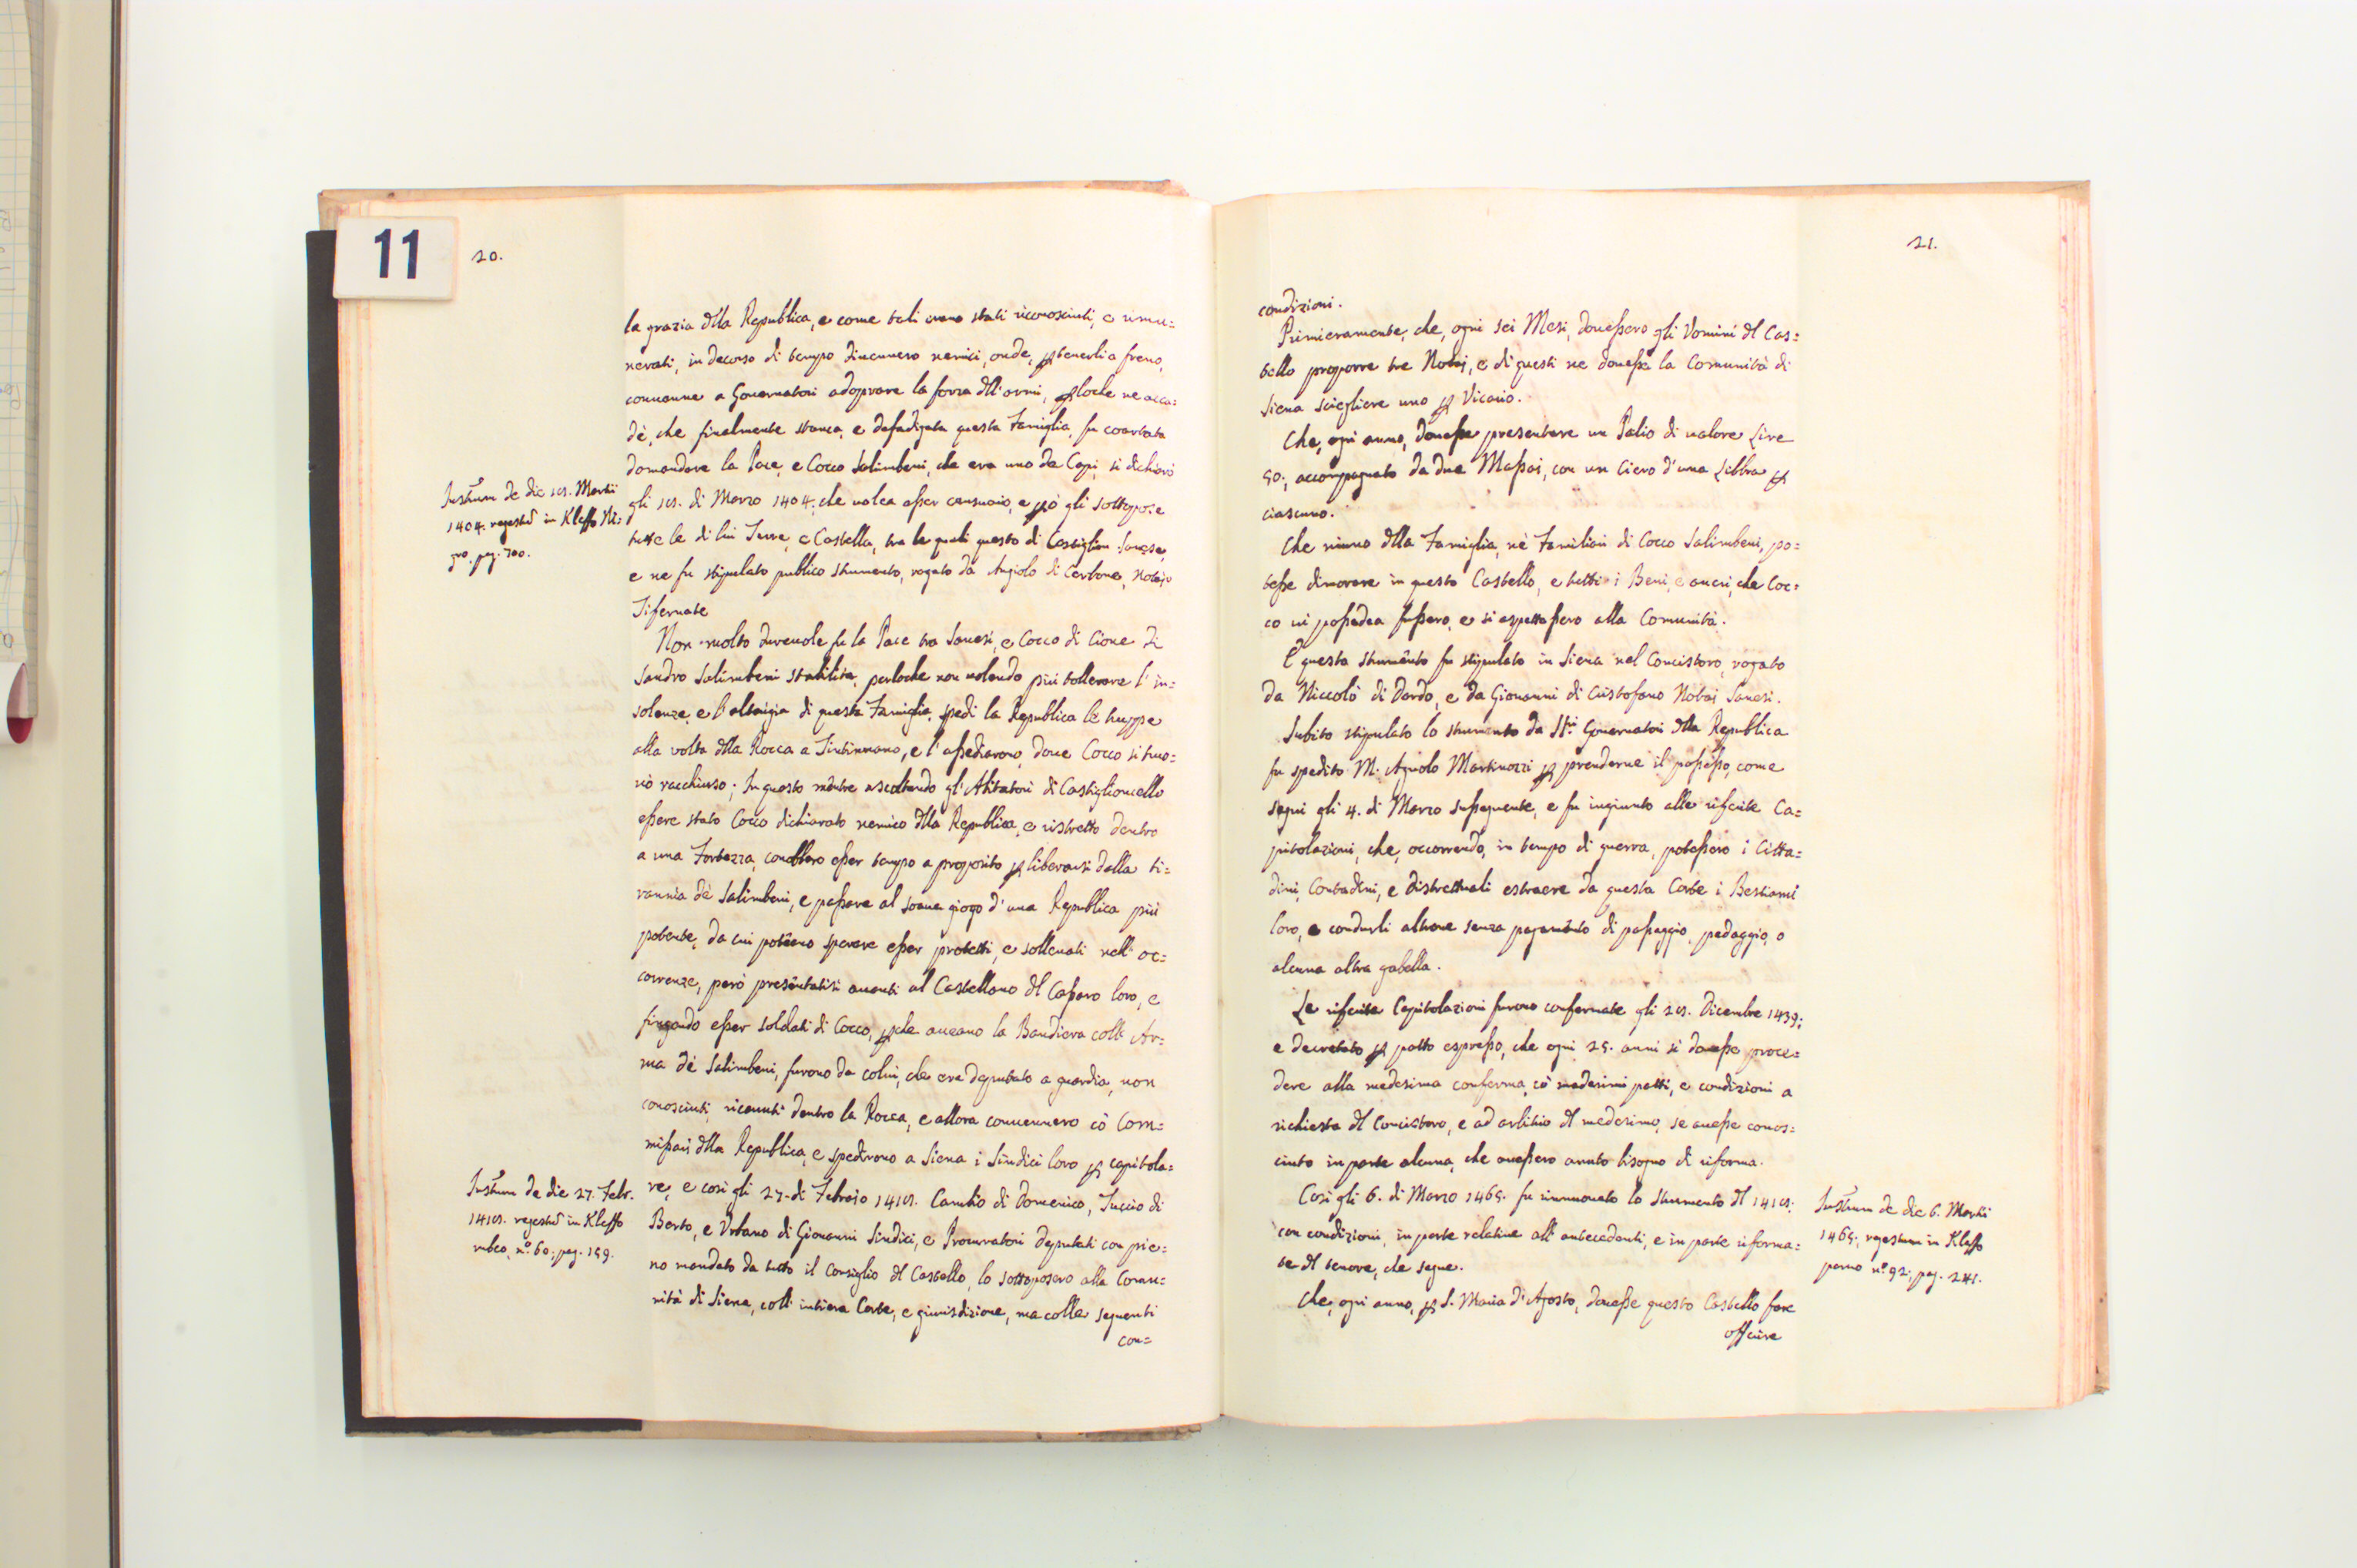 11
20.
la grazia dlla Republica, e come tali erano stati riconosciuti, e rimu=
nerati, in decorso di tempo divennero nemici, onde, p tenerli a freno,
convenne a Governatori adoprare la forza dll'armi, ploche ne acca=
dè, che finalmente stanca, e defadigata questa Famiglia, fu coartata
domandare la Pace, e Cocco Salimbeni, che era uno de Capi, si dichiarò
gli 18. di Marzo 1404. che volea esser censuario, e pò gli sottopose
tutte le di lui Terre, e Castella, tra le quali questo di Castiglion Sanese,
e ne fu stipulato publico strumento, rogato da Angiolo di Cerbone, Notajo
Tifernate
Instrum de die 18. Martii
1404. regestu in Kleffo Ni:
gro. pag. 300.
Non molto durevole fu la Pace tra Sanesi, e Cocco di Cione di
Sandro Salimbeni stabilita, perloche non volendo più tollerare l'in=
solenze, e l'alterigia di questa Famiglia, spedì la Republica le truppe
alla volta dlla Rocca a Tintinnano, e l'assediarono, dove Cocco si truo=
vò racchiuso; In questo mentre ascoltando gl'Abitatori di Castiglioncello
essere stato Cocco dichiarato nemico dlla Republica, e ristretto dentro
a una Fortezza, credettero esser tempo a proposito p liberarsi dalla ti=
rannia dè Salimbeni, e passare al soave giogo d'una Republica più
potente, da cui poteano sperare esser protetti, e sollevati nell'oc=
correnze, però presentatisi avanti al Castellano dl Cassaro loro, e
fingendo esser soldati di Cocco, pche aveano la Bandiera coll'Ar=
ma dè Salimbeni, furono da colui, che era deputato a guardia, non
conosciuti, ricevuti dentro la Rocca, e allora convennero cò Com=
missarj dlla Republica, e spedirono a Siena i Sindici loro p capitola=
re, e così gli 27. di Febrajo 1418. Cambio di Domenico, Tuccio di
Berto, e Urbano di Giovanni Sindici, e Procuratori deputati con pie=
no mandato da tutto il Consiglio dl Castello, lo sottoposero alla Comu=
nità di Siena, coll'intiera Corte, e giurisdizione, ma colle seguenti
con=
Instrum de die 27. Febr.
1418. regestu in Kleffo
rubeo, nº 60. pag. 159.
21.
condizioni.
Primieramente, che, ogni sei Mesi, dovessero gli Vomini dl Cas=
tello proporre tre Notaj, e di questi ne dovesse la Comunità di
Siena sciegliere uno p Vicario.
Che, ogni anno, dovesse presentare un Palio di valore Lire
50., accompagnato da due Massai, con un Ciero d'una Libbra p
ciascuno.
Che niuno dlla Famiglia, nè Familiari di Cocco Salimbeni, po=
tesse dimorare in questo Castello, e tutti i Beni, e averi, che Coc=
co vi possedea fussero, e si aspettassero alla Comunità.
E questo strumento fu stipulato in Siena nel Concistoro, rogato
da Niccolò di Dardo, e da Giovanni di Cristofano Notai Sanesi.
Subito stipulato lo strumento da Sti Governatori dlla Republica
fu spedito M. Agnolo Martinozzi p prenderne il possesso, come
seguì gli 4. di Marzo susseguente, e fu ingiunto alle riferite Ca=
pitolazioni, che, occorrendo, in tempo di guerra, potessero i Citta=
dini, Contadini, e distrettuali estraere da questa Corte i Bestiami
loro, e condurli altrove senza pagamento di passaggio, pedaggio, o
alcuna altra gabella.
Le riferite Capitolazioni furono confermate gli 28. Dicembre 1439:
e decretato p patto espresso, che ogni 25. anni si dovesse proce=
dere alla medesima conferma, cò medesimi patti, e condizioni a
richiesta dl Concistoro, e ad arbitrio dl medesimo, se avesse conos=
ciuto in parte alcuna, che avessero avuto bisogno di riforma.
Così gli 6. di Marzo 1465. fu rinnuovato lo strumento dl 1418:
con condizioni, in parte relative all'antecedenti, e in parte riforma=
te dl tenore, che segue.
Che, ogni anno, p S. Maria d'Agosto, dovesse questo Castello fare
offerire
Instrum de die 6. Martii
1465, regestum in Kleffo
parvo nº 92. pag. 241.